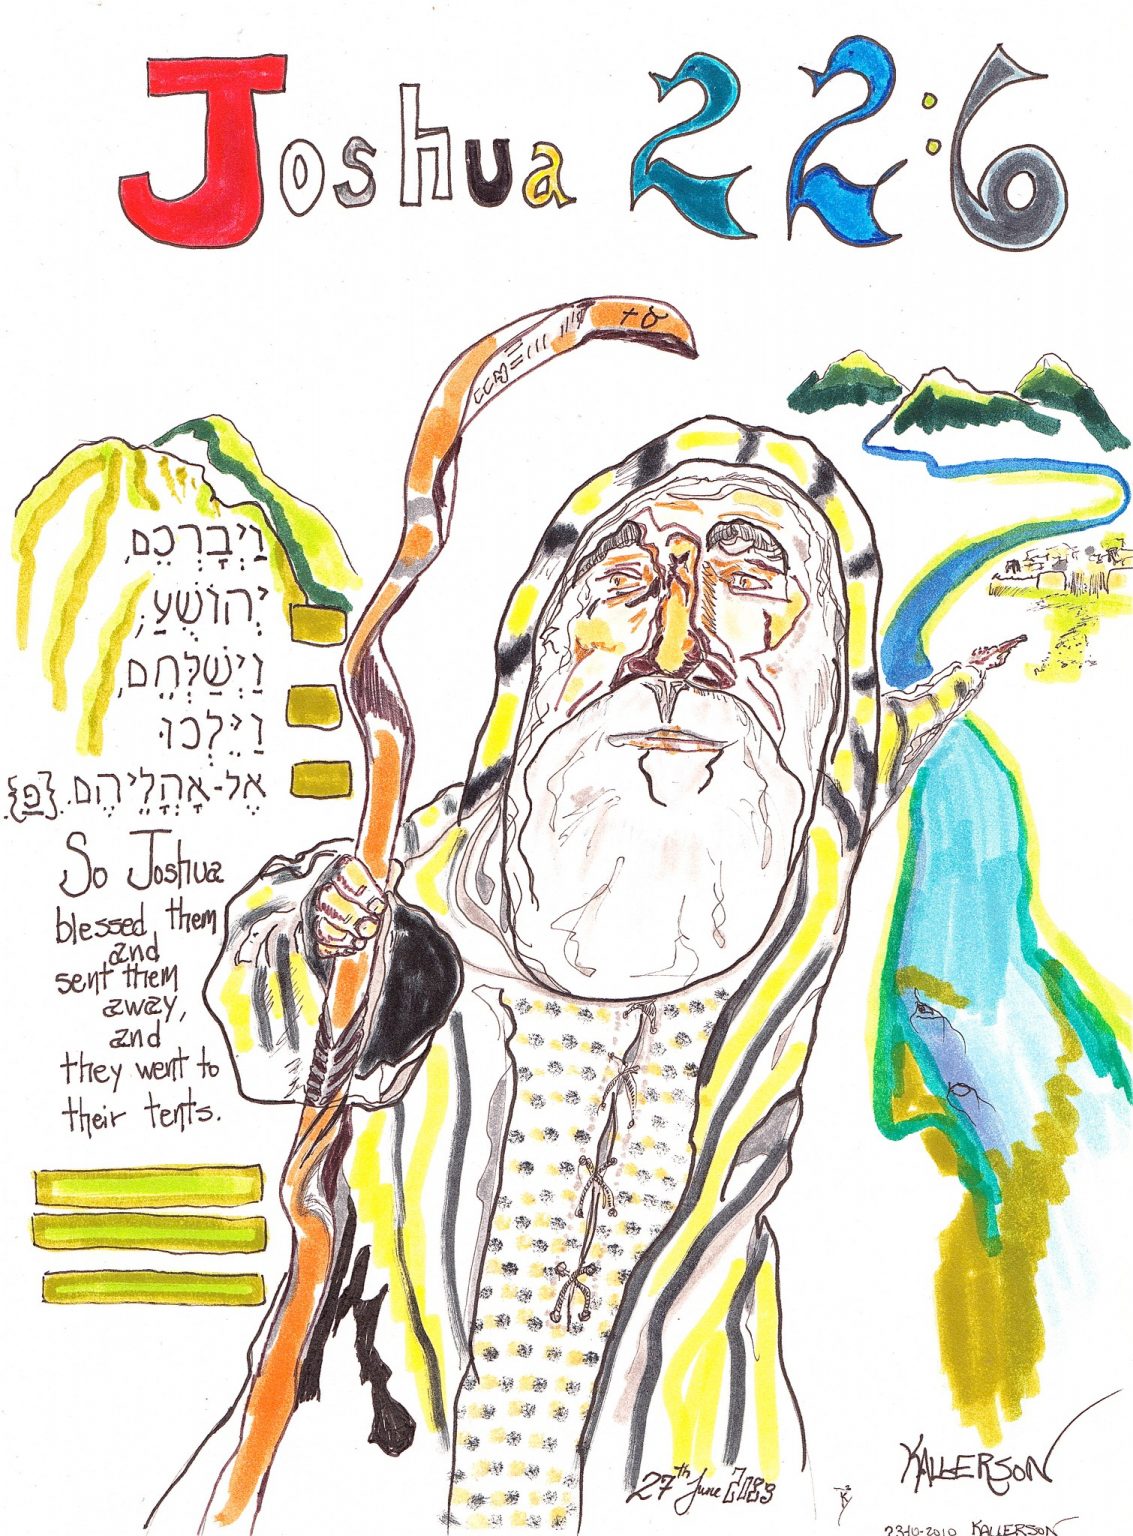 Joshua 22:6
וַיְבָרְכֵם,
יְהוֹשֻׁעַ;
וַיְשַׁלְּחֵם,
וַיֵּלְכוּ
אֶל-אָהֳלֵיהֶם. {פ}
So Joshua
blessed them
and
sent them
away,
and
they went to
their tents.
KALLERSON
27th June
23-10-2010 KALLERSON